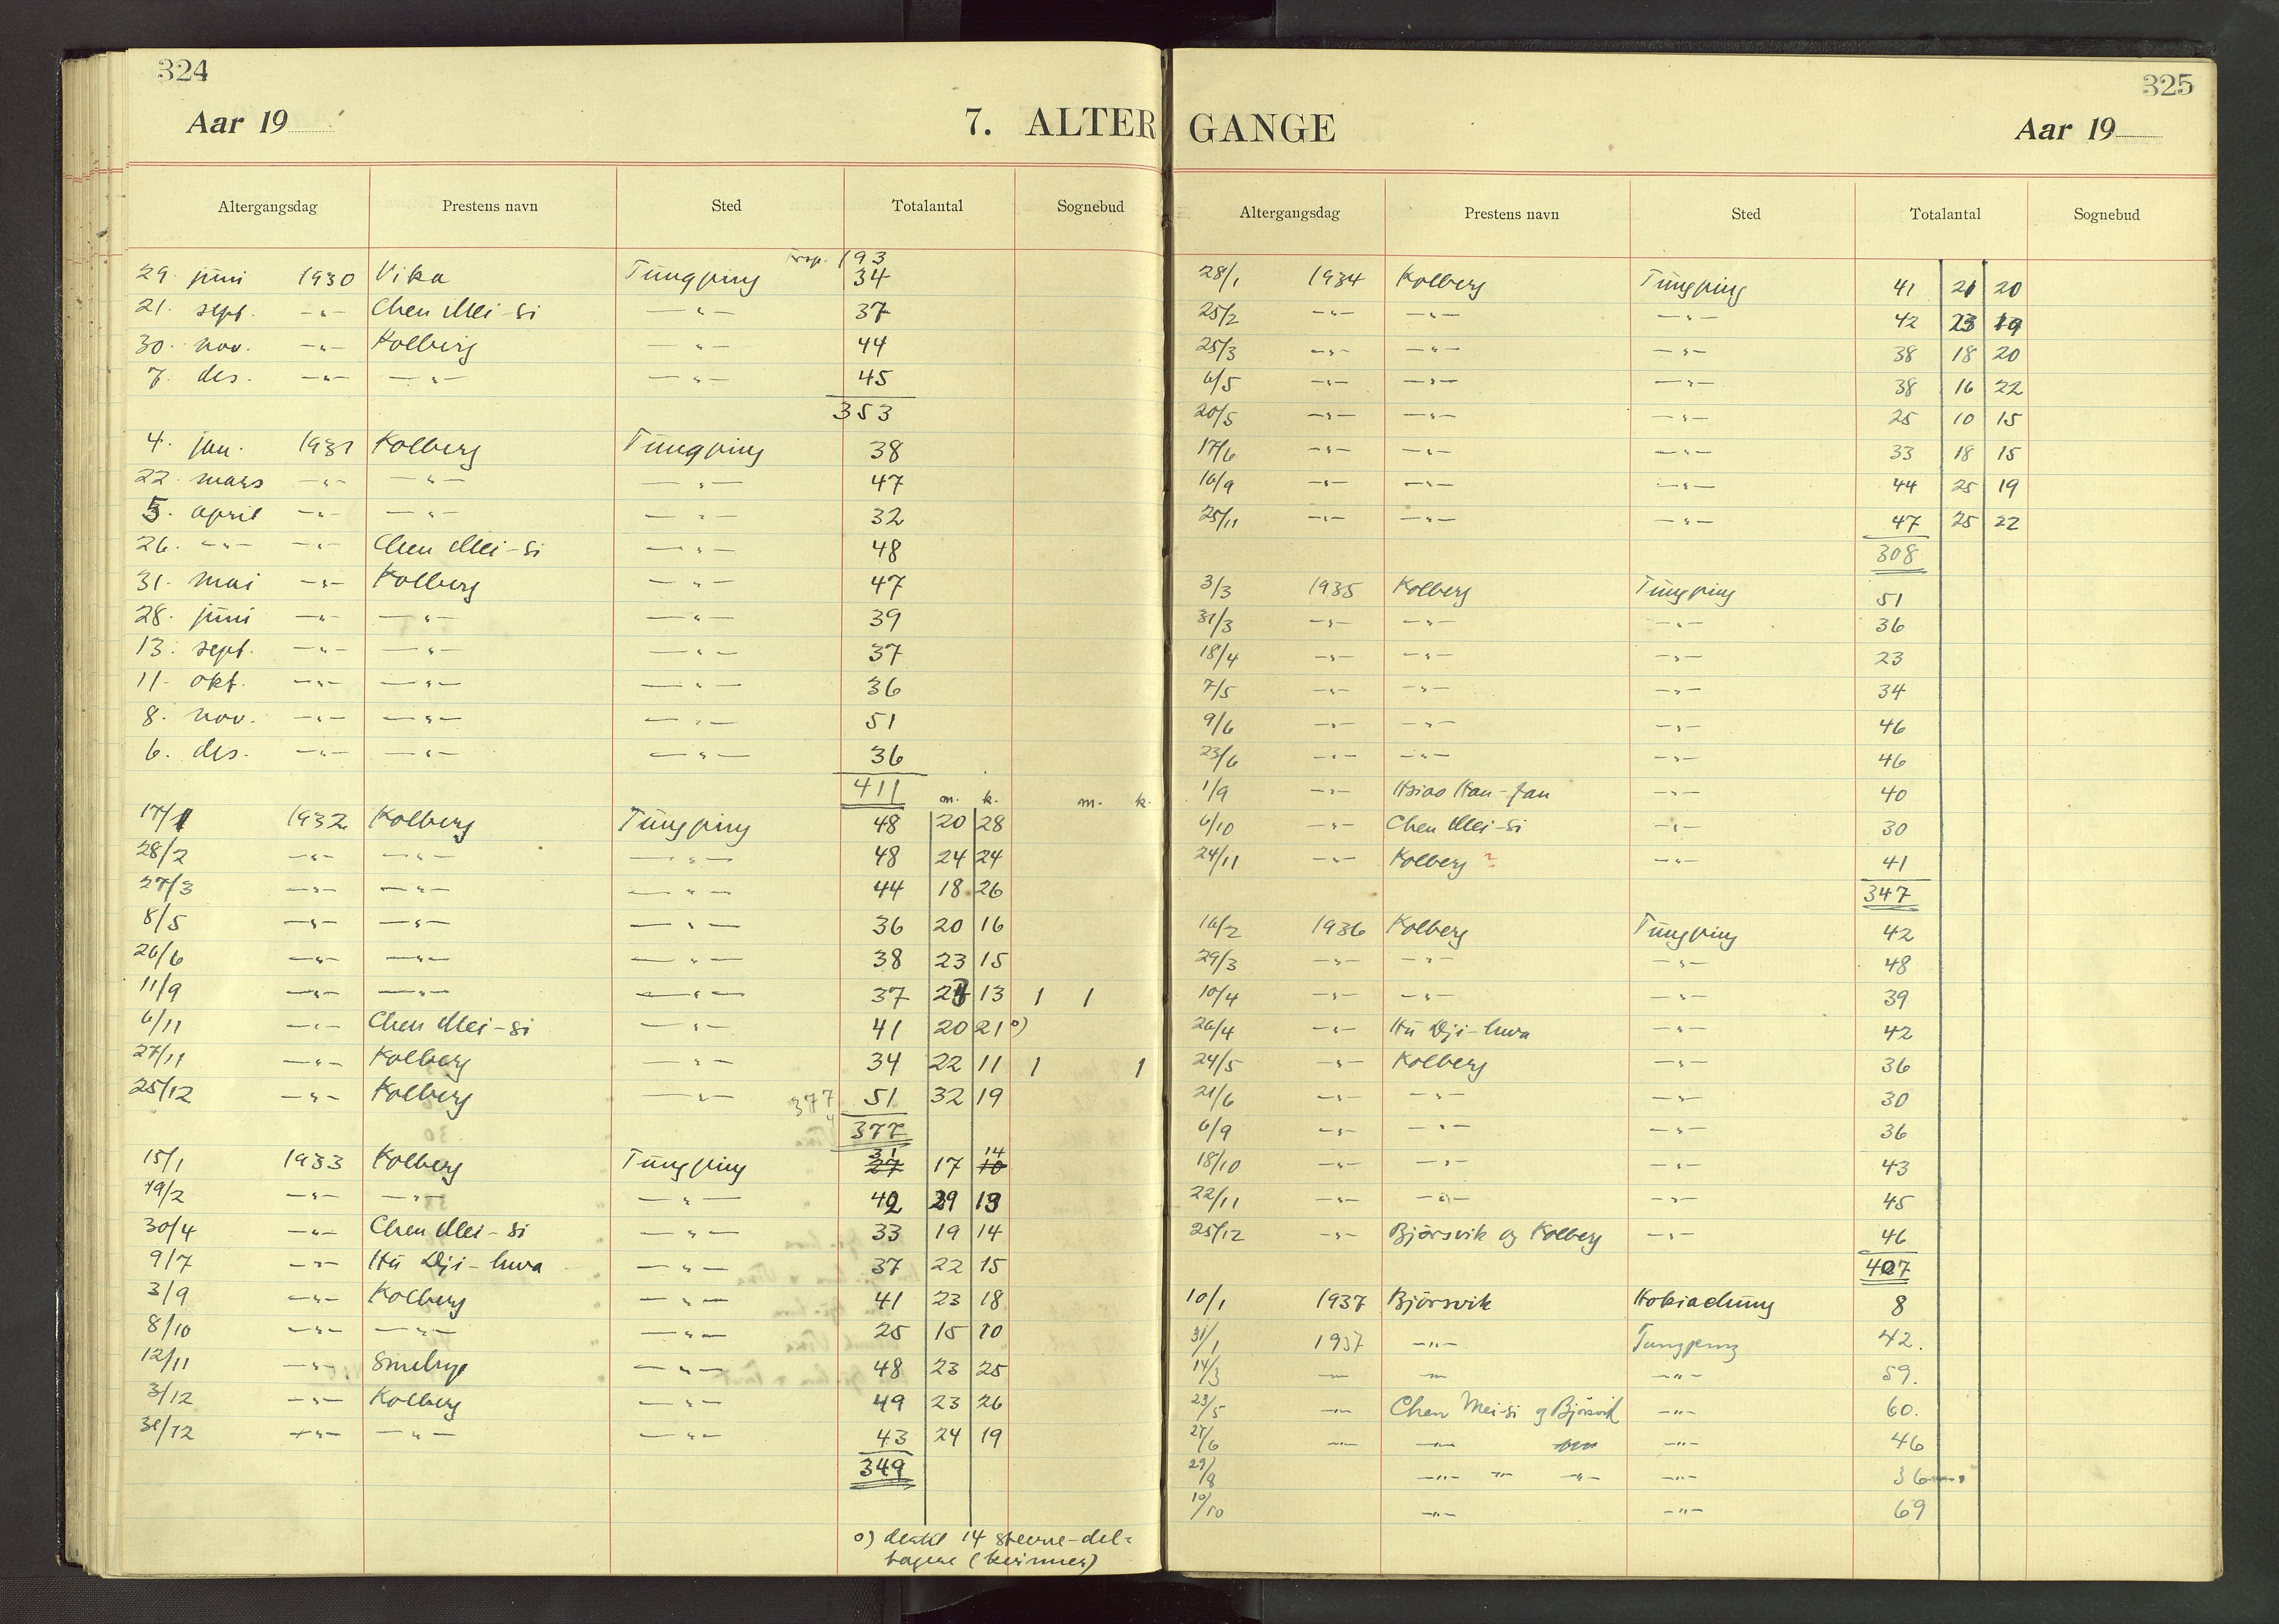 324
Aar 19
7. ALTER
Altergangsdag Prestens navn Sted Totalantal Sognebud
trsp. 193
29. juni 1930 Vika Tungping 34
21. sept. -"- Chen Mei-si -"- 37
30. nov. -"- Kolberg -"- 44
7. des. -"- -"- -"- 45
353
4. jan. 1931 Kolberg Tungping 38
22. mars -"- -"- -"- 47
5. april -"- -"- -"- 32
26. -"- -"- Chen Mei-si -"- 48
31. mai -"- Kolberg -"- 47
28. juni -"- -"- -"- 39
13. sept. -"- -"- -"- 37
11. okt. -"- -"- -"- 36
8. nov. -"- -"- -"- 51
6. des. -"- -"- -"- 36
411 m. k. m. k.
17/1 1932 Kolberg Tungping 48 20 28
28/2 -"- -"- -"- 48 24 24
27/3 -"- -"- -"- 44 18 26
8/5 -"- -"- -"- 36 20 16
26/6 -"- -"- -"- 38 23 15
11/9 -"- -"- -"- 37 23 13 1 1
6/11 -"- Chen Mei-si -"- 41 20 21 o)
27/11 -"- Kolberg -"- 34 22 11 1 1
25/12 -"- Kolberg -"- 377 51 32 19
377
31 14
15/1 1933 Kolberg Tungping 27 17 10
19/2 -"- -"- -"- 42 29 13
30/4 -"- Chen Mei-si -"- 33 19 14
9/7 -"- Hu Dji-hwa -"- 37 22 15
3/9 -"- Kolberg -"- 41 23 18
8/10 -"- -"- -"- 25 15 10
12/11 -"- Smebye -"- 48 23 25
3/12 -"- Kolberg -"- 49 23 26
31/12 -"- -"- -"- 43 24 19
349
o) dertil 14 stevne-del=
tagere (kvinner)
325
GANGE
Aar 19
Altergangsdag Prestens navn Sted Totalantal Sognebud
28/1 1934 Kolberg Tungping 41 21 20
25/2 -"- -"- -"- 42 23 19
25/3 -"- -"- -"- 38 18 20
6/5 -"- -"- -"- 38 16 22
20/5 -"- -"- -"- 25 10 15
17/6 -"- -"- -"- 33 18 15
16/9 -"- -"- -"- 44 25 19
25/11 -"- -"- -"- 47 25 22
308
3/3 1935 Kolberg Tungping 51
31/3 -"- -"- -"- 36
18/4 -"- -"- -"- 23
7/5 -"- -"- -"- 34
9/6 -"- -"- 46
23/6 -"- -"- -"- 46
1/9 -"- Hsiao Han-fan -"- 40
6/10 -"- Chen Mei-si -"- 30
24/11 -"- Kolberg ? -"- 41
347
16/2 1936 Kolberg Tungping 42
29/3 -"- -"- -"- 48
10/4 -"- -"- -"- 39
26/4 -"- Hu Dji-hwa -"- 42
24/5 -"- Kolberg -"- 36
21/6 -"- -"- -"- 30
6/9 -"- -"- -"- 36
18/10 -"- -"- -"- 43
22/11 -"- -"- -"- 45
25/12 -"- Bjørsvik og Kolberg -"- 46
407
10/1 1937 Bjørsvik Hokiachung 8
31/1 1937 -"- Tungping 42.
14/3 -"- -"- -"- 59.
23/5 -"- Chen Mei-si og Bjørsvik -"- 60.
27/6 -"- -"- -"- 46
29/8 -"- -"- -"- -"- 36
10/10 -"- -"- 69